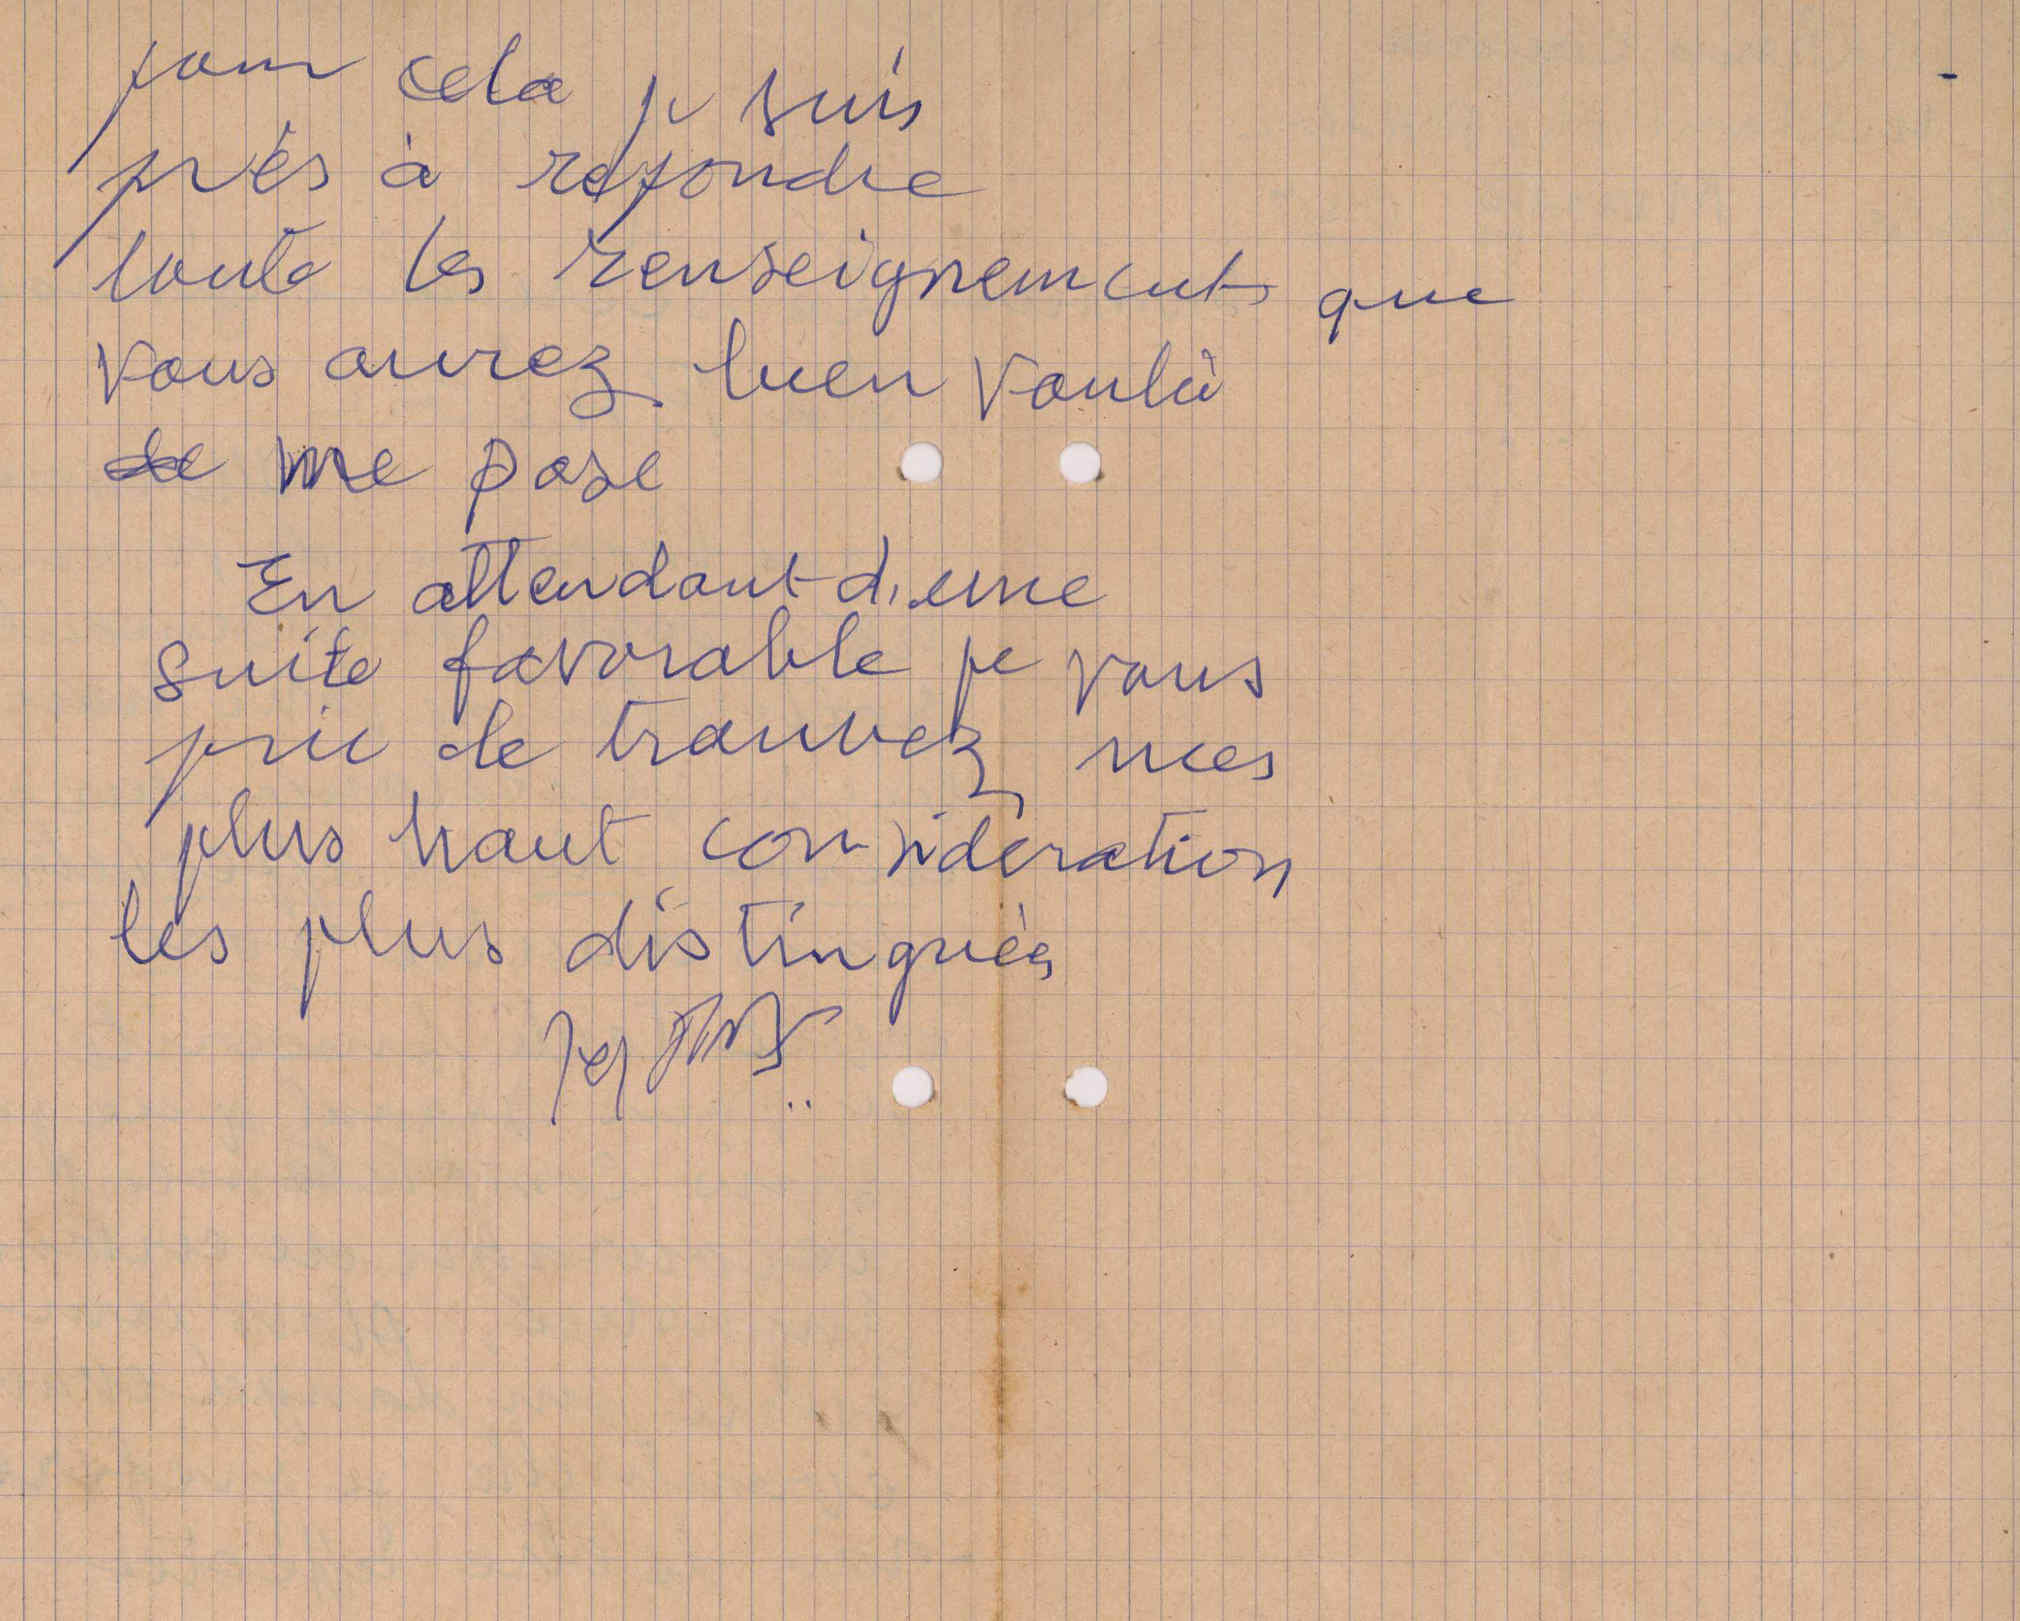 pour cela je suis
près à repondre
toute les renseignements que
vous aurez bien voulù
de me pose
En attendant d'une
suite favorable je vous
prie de trouvez mes
plus haut consideration
les plus distinguèes